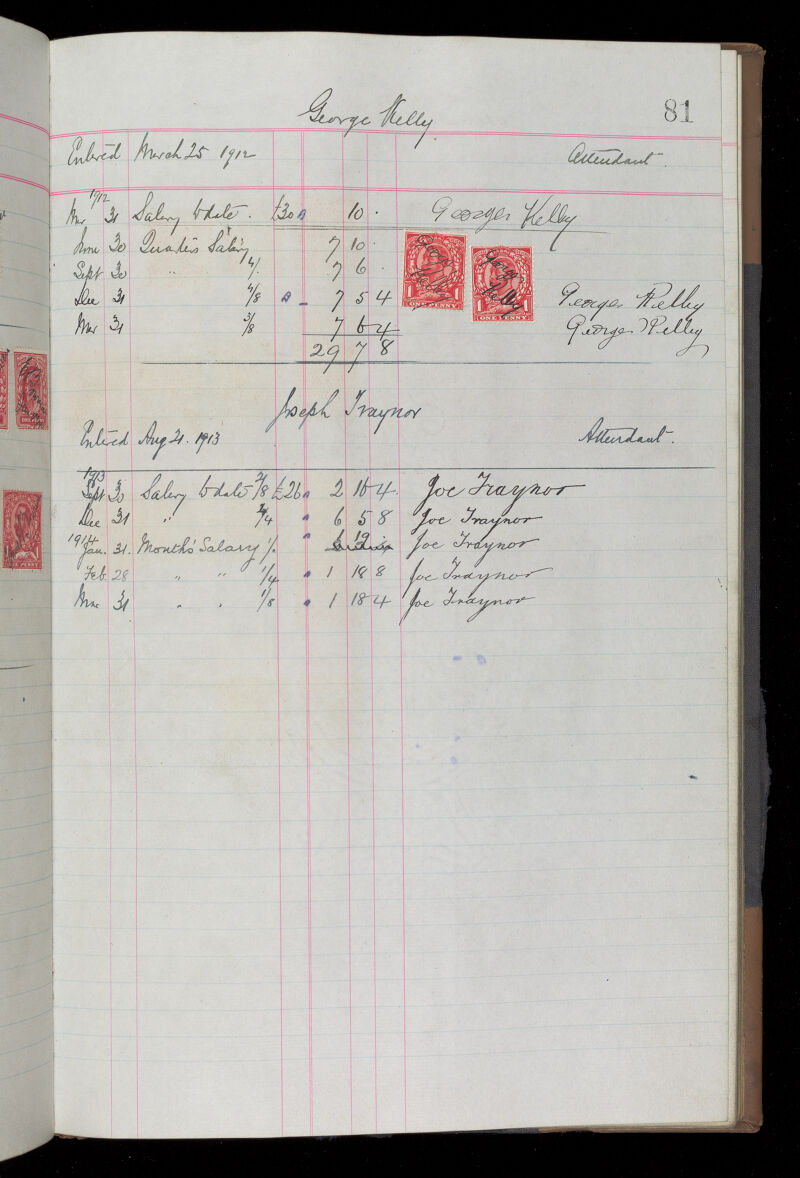 81
George Kelly
Entered March 25 1912 Attendant.
1912
Mar 31 Salary to date. £30 10 . George Kelly
June 30 Quarter's Salary 7 10 .
Sept 30 " " 4/. 7 6 .
Dec 31 4/8 7 5 4 George Kelly
Mar 31 3/8 7 6 4 George Kelly
29 7 8
George Kelly
George Kelly
ONE PENNY
ONE PENNY
Joseph Traynor
Entered Aug 21. 1913 Attendant.
1913
Sept 30 Salary to date 2/8 £26 2 16 4. Joe Traynor
Dec 31 " 2/4 6 5 8 Joe Traynor
1914
Jan. 31. Month's Salary 1/. 19 Joe Traynor
Feb. 28 " " 1/4 1 18 8 Joe Traynor
Mar 31 " " 1/8 1 18 4 Joe Traynor
ONE PENNY
ONE PENNY